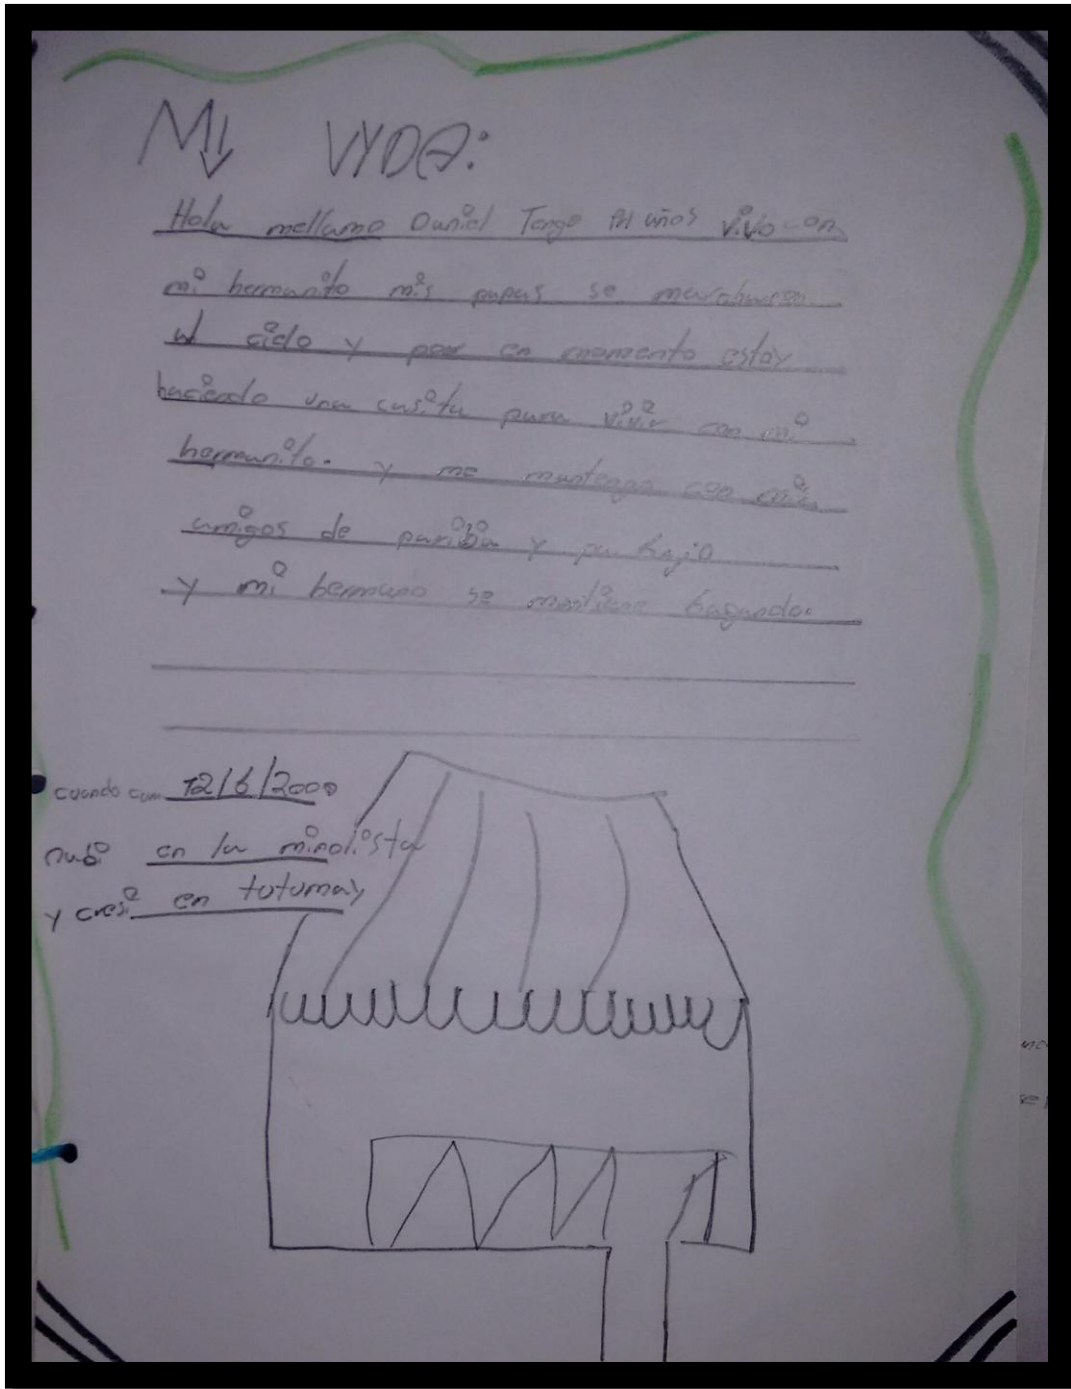 Mi VYDA:
Hola mellamo Daniel Tengo años vivo con
mi hermanito mis papas se marcharon
al cielo y por en momento estoy
haciendo una casita para vivir con mi
hermanito. y me mantengo con mis
amigos de pariba y pa bajo
y mi hermano se mantiene bagando.
cuando 12/6/2000
nasi en la minolista
y cresi en totumay